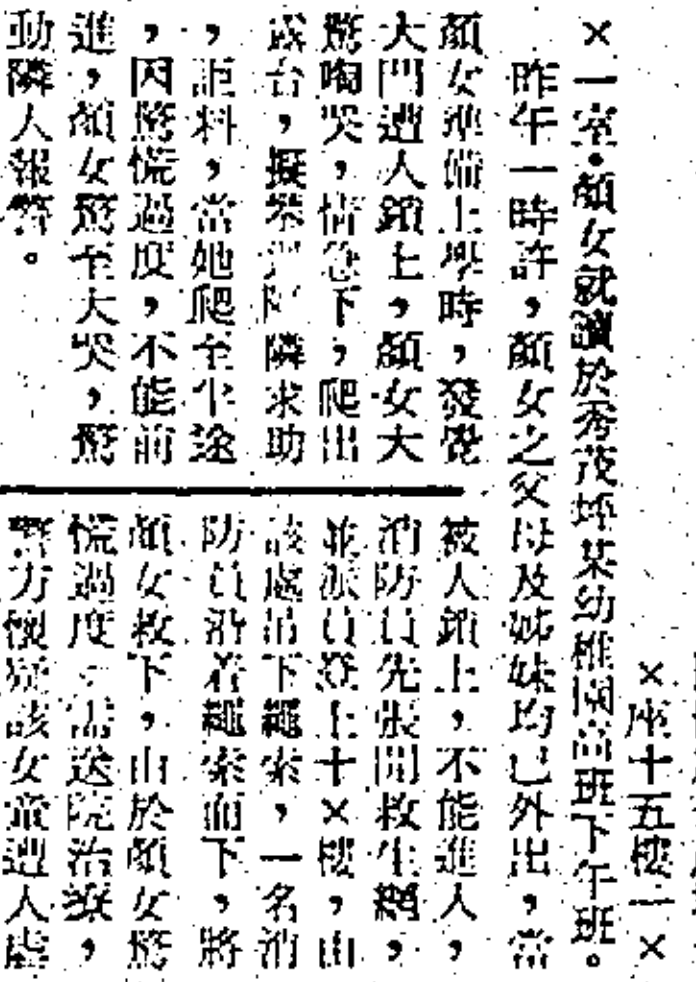 ×座十五樓一×
×一室。顏女就讀於秀茂坪某幼稚園高班下午班。
昨午一時許，顏女之父母及姊妹均已外出，當
顏女準備上學時，發覺
大門遭人鎖上，顏女大
驚啕哭，情急下，爬出
台，擬攀 隣求助
，詎料，當她爬至半途
，因驚慌過度，不能前
進，顏女驚至大哭，驚
動隣人報警。
被人鎖上，不能進入，
消防員先張開救生網，
並派員登上十×樓，由
該處吊下繩索，一名消
防員沿着繩索而下，將
顏女救下，由於顏女驚
慌過度，需送院治療，
警方懷疑該女童遭人虐